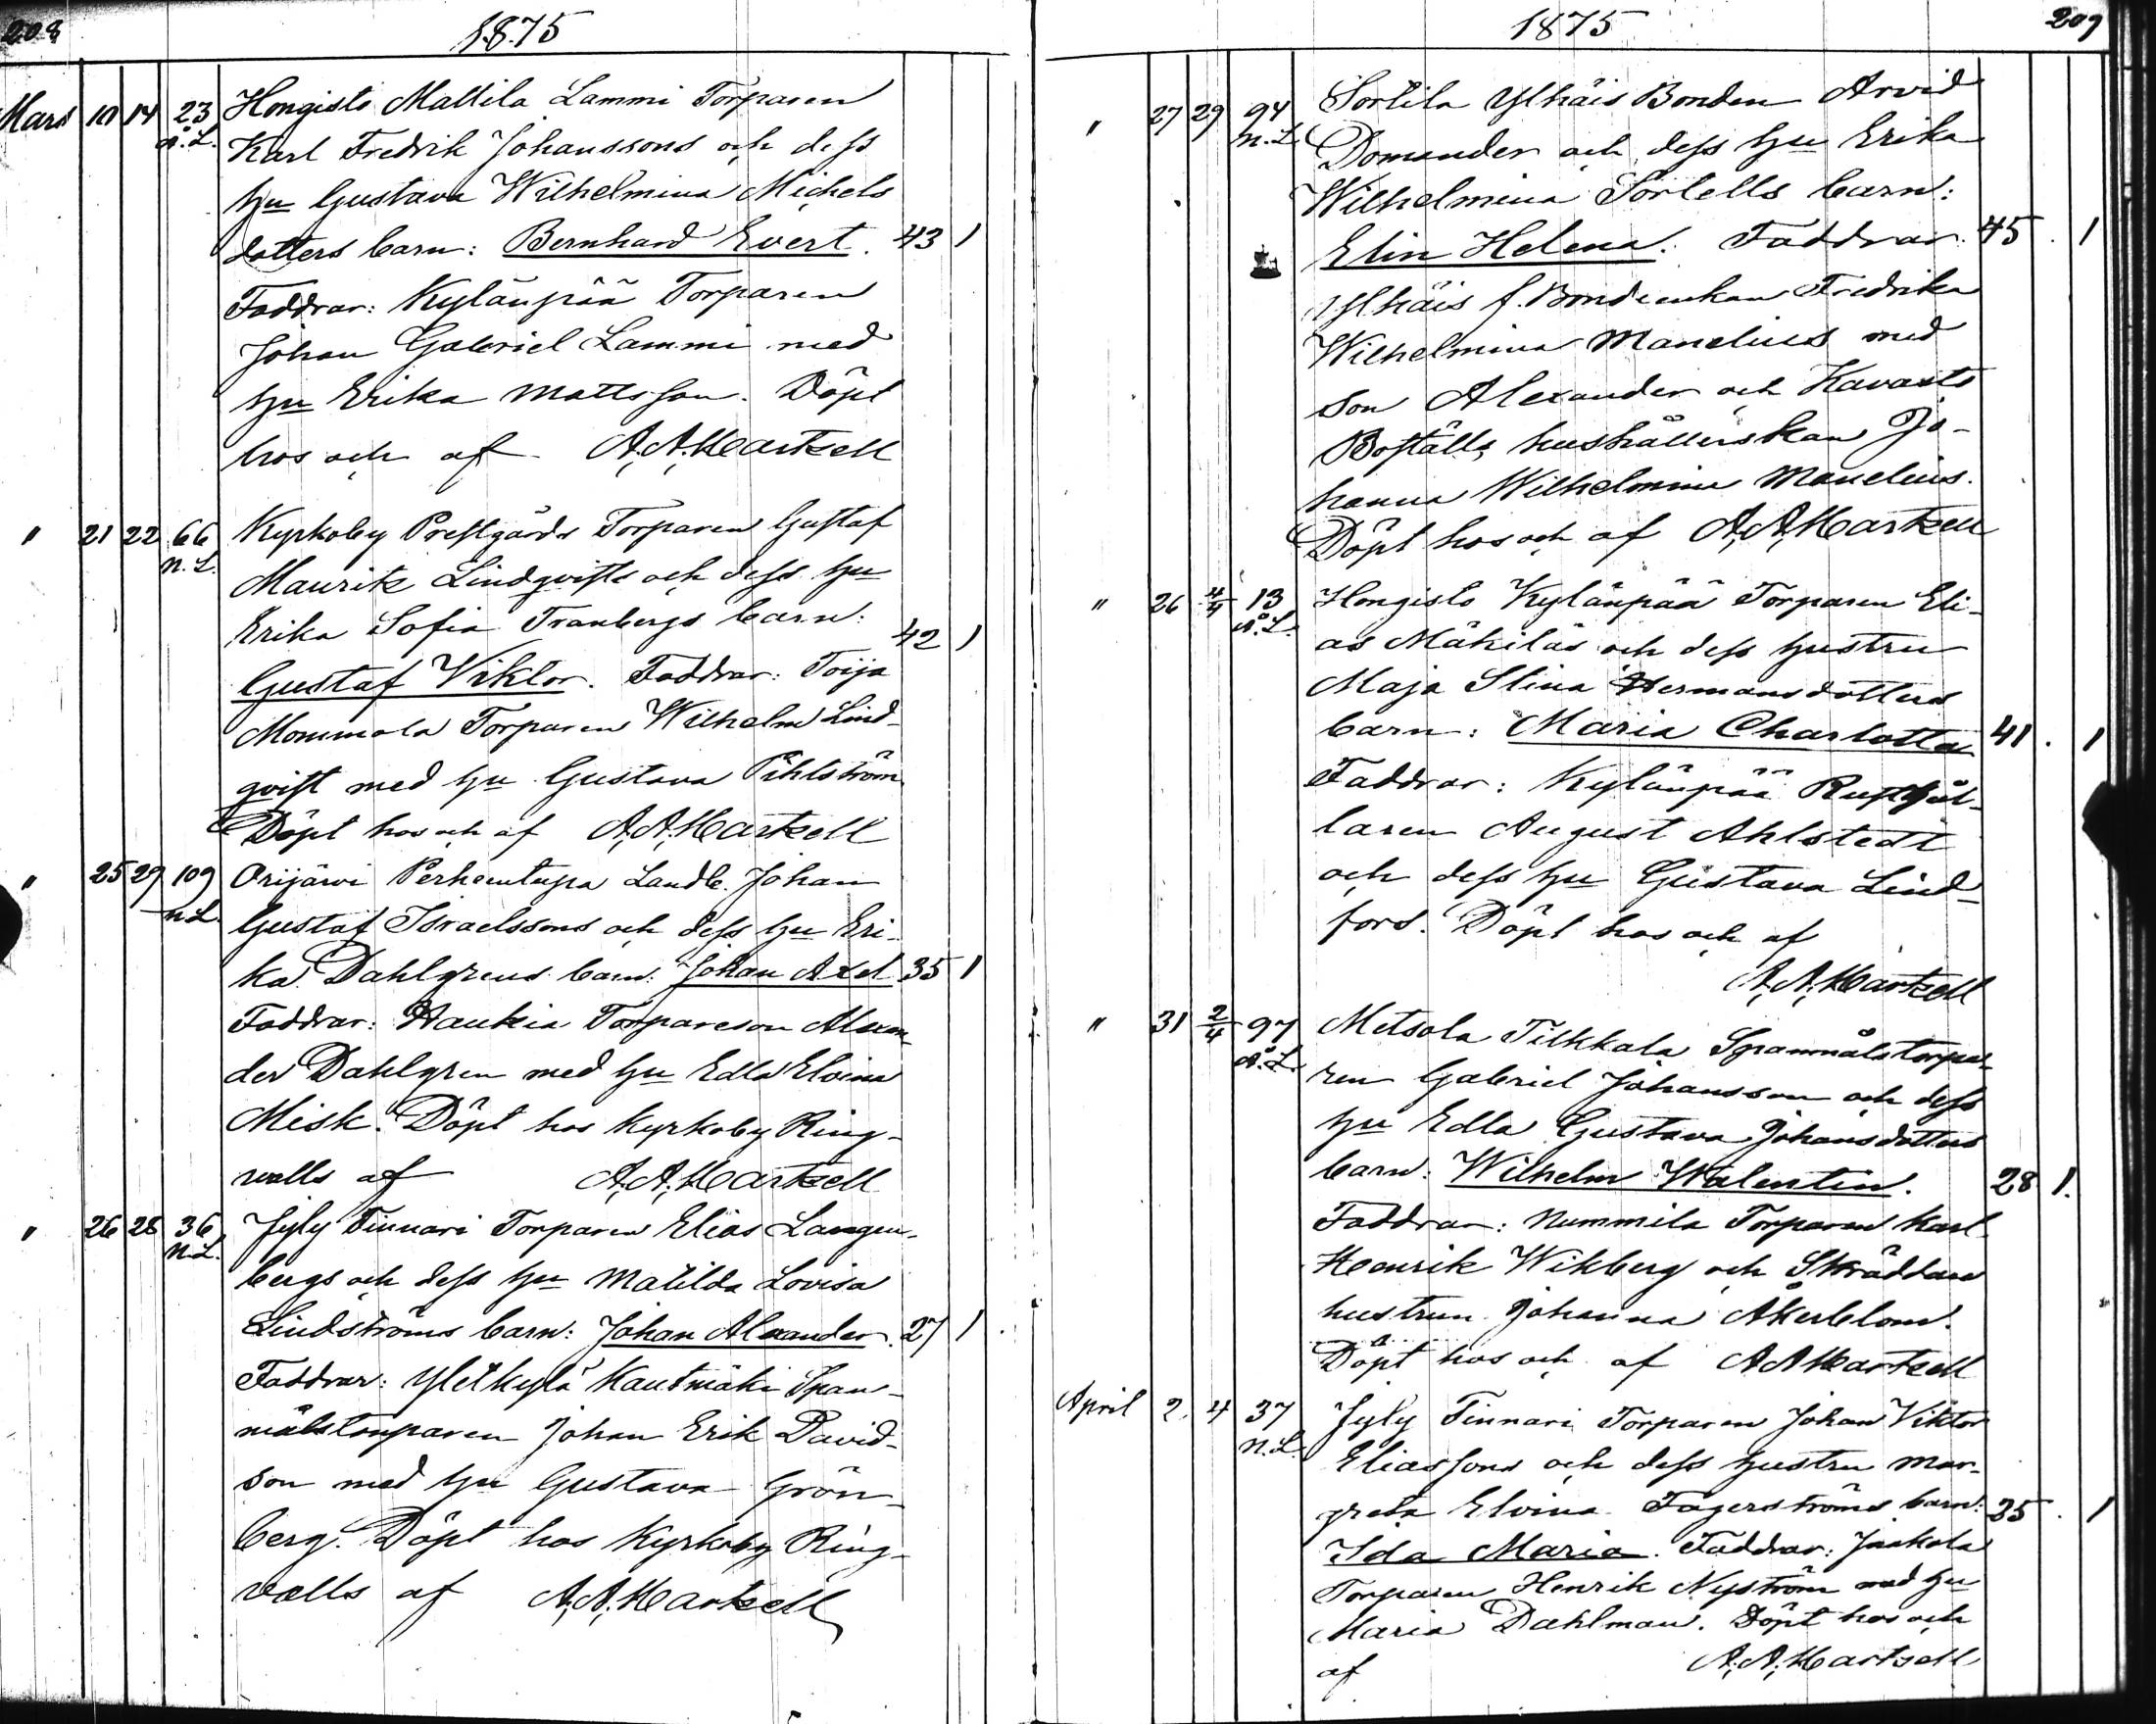 208
1875
Mars 10 14 23 Hongisto Mattila Lammi Torparen
Å.L. Karl Fredrik Johanssons och dess
hu Gustava Wilhelmina Michels
dotters barn: Bernhard Evert. 43 1
Faddrar: Kylänpää Torparen
Johan Gabriel Lammi med
hu Erika Mattsson. Döpt
hos och af A.A. Hartzell
" 21 22 66 Kyrkoby Prestgårds Torparen Gustaf
N.L. Mauritz Lindqvists och dess hu
Erika Sofia Tranbergs barn: 42 1
Gustaf Viktor. Faddrar: Toija
Mommola Torparen Wilhelm Lind-
qvist med hu Gustava Pihlström
Döpt hos och af A.A. Hartzell
" 25 29 109 Orijärvi Perhentupa Landb. Johan
N.L. Gustaf Israelssons och dess hu Eri-
ka Dahlgrens barn: Johan Axel 35 1
Faddrar: Haukia Torpareson Alexan
der Dahlgren med hu Edla Elvina
Misk. Döpt hos Kyrkoby Ring-
valls af A.A. Hartzell
" 26 28 36 Jyly Tinnari Torparen Elias Langen-
N.L. bergs och dess hu Matilda Lovisa
Lindströms barn: Johan Alexander. 27 1
Faddrar: Ylikylä Kautmäki Span-
målstorparen Johan Erik David-
son med hu Gustava Grön-
berg. Döpt hos Kyrkoby Ring-
valls af A.A. Hartzell
1875
209
" 27 29 94 Sortila Ylhäis Bonden Arvid
N.L. Domander och dess hu Erika
Wilhelmina Sortells barn:
Elin Helena. Faddrar: 45. 1
Ylhäis f. Bondeenkan Fredrika
Wilhelmina Manelius med
son Alexander och Kavasto
Boställs hushållerskan Jo-
hanna Wilhelmina Manelius.
Döpt hos och af A.A. Hartzell
" 26 4/4 13 Hongisto Kylänpää Torparen Eli-
Å.L. as Mäkiläs och dess hustru
Maja Stina Hermansdotters
barn: Maria Charlotta 41. 1
Faddrar: Kylänpää Rusthål-
laren August Ahlstedt
och dess hu Gustava Lind-
fors. Döpt hos och af
A.A. Hartzell
" 31 2/4 97 Metsola Tilkkala Spannmålstorpa-
Å.L. ren Gabriel Johansson och dess
hu Edla Gustava Johansdotters
barn: Wilhelm Walentin. 28 1.
Faddrar: Nummila Torparen Karl
Henrik Wikberg och Skräddare
hustrun Johanna Åkerblom.
Döpt hos och af A.A. Hartzell
April 2. 4 37 Jyly Tinnari Torparen Johan Viktor
N.L. Eliassons och dess hustru Mar-
greta Elvina Fagerströms barn: 35. 1
Ida Maria. Faddrar: Jaakola
Torparen Henrik Nyström med hu
Maria Dahlman. Döpt hos och
af A.A. Hartzell